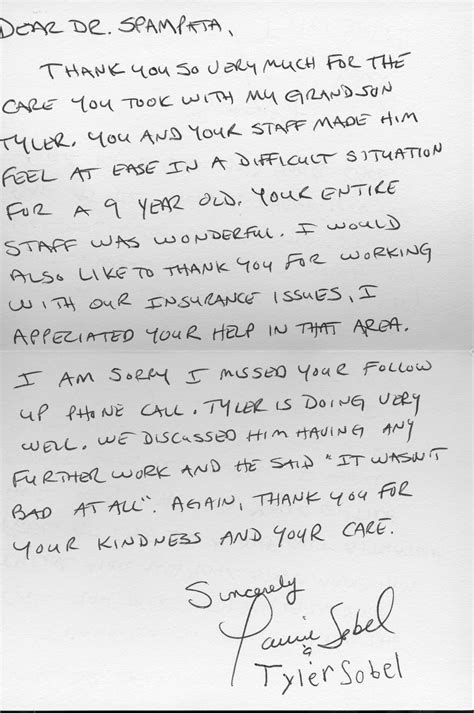 DEAR DR. SPAMPATA,
THANK YOU SO VERY MUCH FOR THE
CARE YOU TOOK WITH MY GRANDSON
TYLER. YOU AND YOUR STAFF MADE HIM
FEEL AT EASE IN A DIFFICULT SITUATION
FOR A 9 YEAR OLD. YOUR ENTIRE
STAFF WAS WONDERFUL. I WOULD
ALSO LIKE TO THANK YOU FOR WORKING
WITH OUR INSURANCE ISSUES, I
APPECIATED YOUR HELP IN THAT AREA.
I AM SORRY I MISSED YOUR FOLLOW
UP PHONE CALL. TYLER IS DOING VERY
WELL. WE DISCUSSED HIM HAVING ANY
FURTHER WORK AND HE SAID "IT WASN'T
BAD AT ALL". AGAIN, THANK YOU FOR
YOUR KINDNESS AND YOUR CARE.
Sincerely
Sobel
&
Tyler Sobel